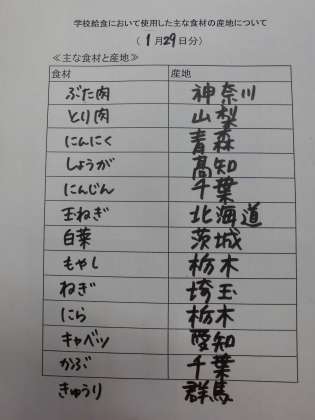 学校給食において使用した主な食材の産地について
（ 1月29日分）
≪主な食材と産地≫
食材 産地
ぶた肉 神奈川
とり肉 山梨
にんにく 青森
しょうが 高知
にんじん 千葉
玉ねぎ 北海道
白菜 茨城
もやし 栃木
ねぎ 埼玉
にら 栃木
キャベツ 愛知
かぶ 千葉
きゅうり 群馬